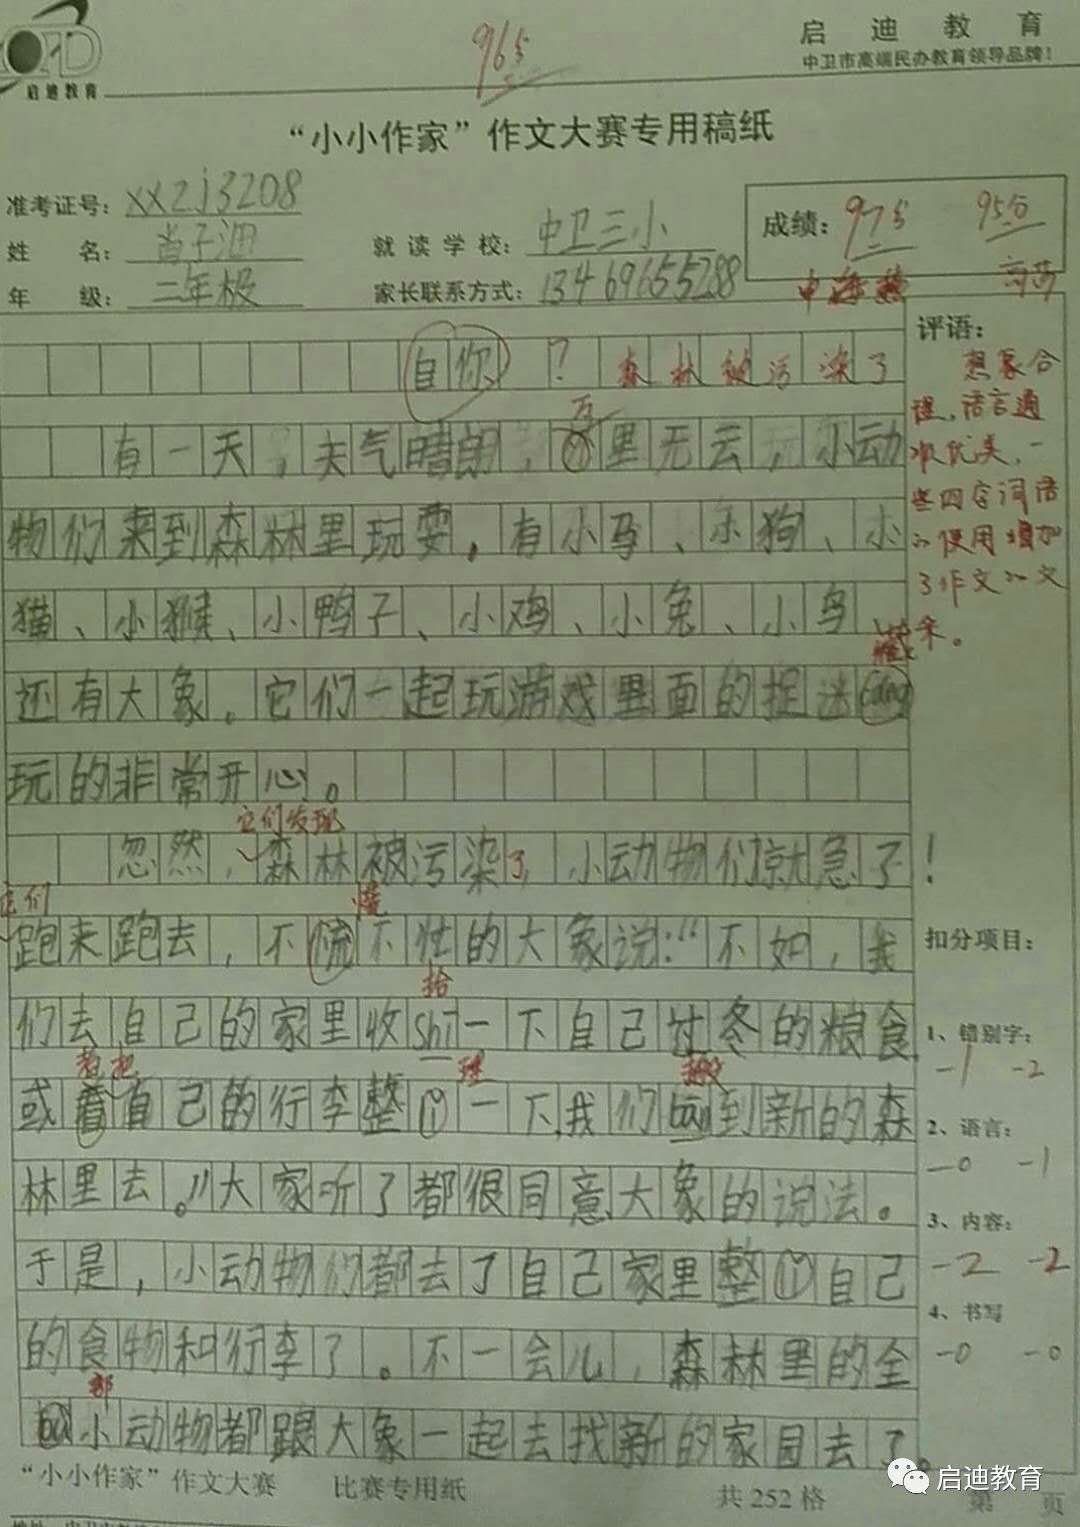 启迪教育
965
启迪教育
中卫市高端民办教育领导品牌!
“小小作家”作文大赛专用稿纸
准考证号: xxzj3208
姓名:
就读学校: 中卫三小
年级: 二年极
家长联系方式: 13469655288
成绩: 975 955
评语:
想象合
理,语言通
顺优美,一
些四字词语
的使用增加
了作文的文
采。
自你? 森林被污染了
万
有一天,天气晴朗,里无云,小动
物们来到森林里玩耍。有小马、小狗、小
猫、小猴、小鸭子、小鸡、小兔、小鸟、
藏
还有大象。它们一起玩游戏里面的捉迷cang
玩的非常开心。
它们发现
忽然,森林被污染了,小动物们就急了!
它们 慌
跑来跑去,不慌不忙的大象说:“不如,我
拾
们去自己的家里收shi一下自己过冬的粮食
者把 理 搬
或着自己的行李整li一下,我们ban到新的森
林里去。”大家听了都很同意大象的说法。
于是,小动物们都去了自己家里整li自己
的食物和行李了。不一会儿,森林里的全
部
bu小动物都跟大象一起去找新的家园去了。
扣分项目:
1、错别字:
-1 -2
2、语言:
-0 -1
3、内容:
-2 -2
4、书写
-0 -0
“小小作家”作文大赛 比赛专用纸 共252格 第 页
启迪教育